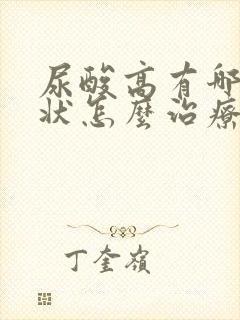 尿酸高有哪
狀怎麼治療
丁奎嶺